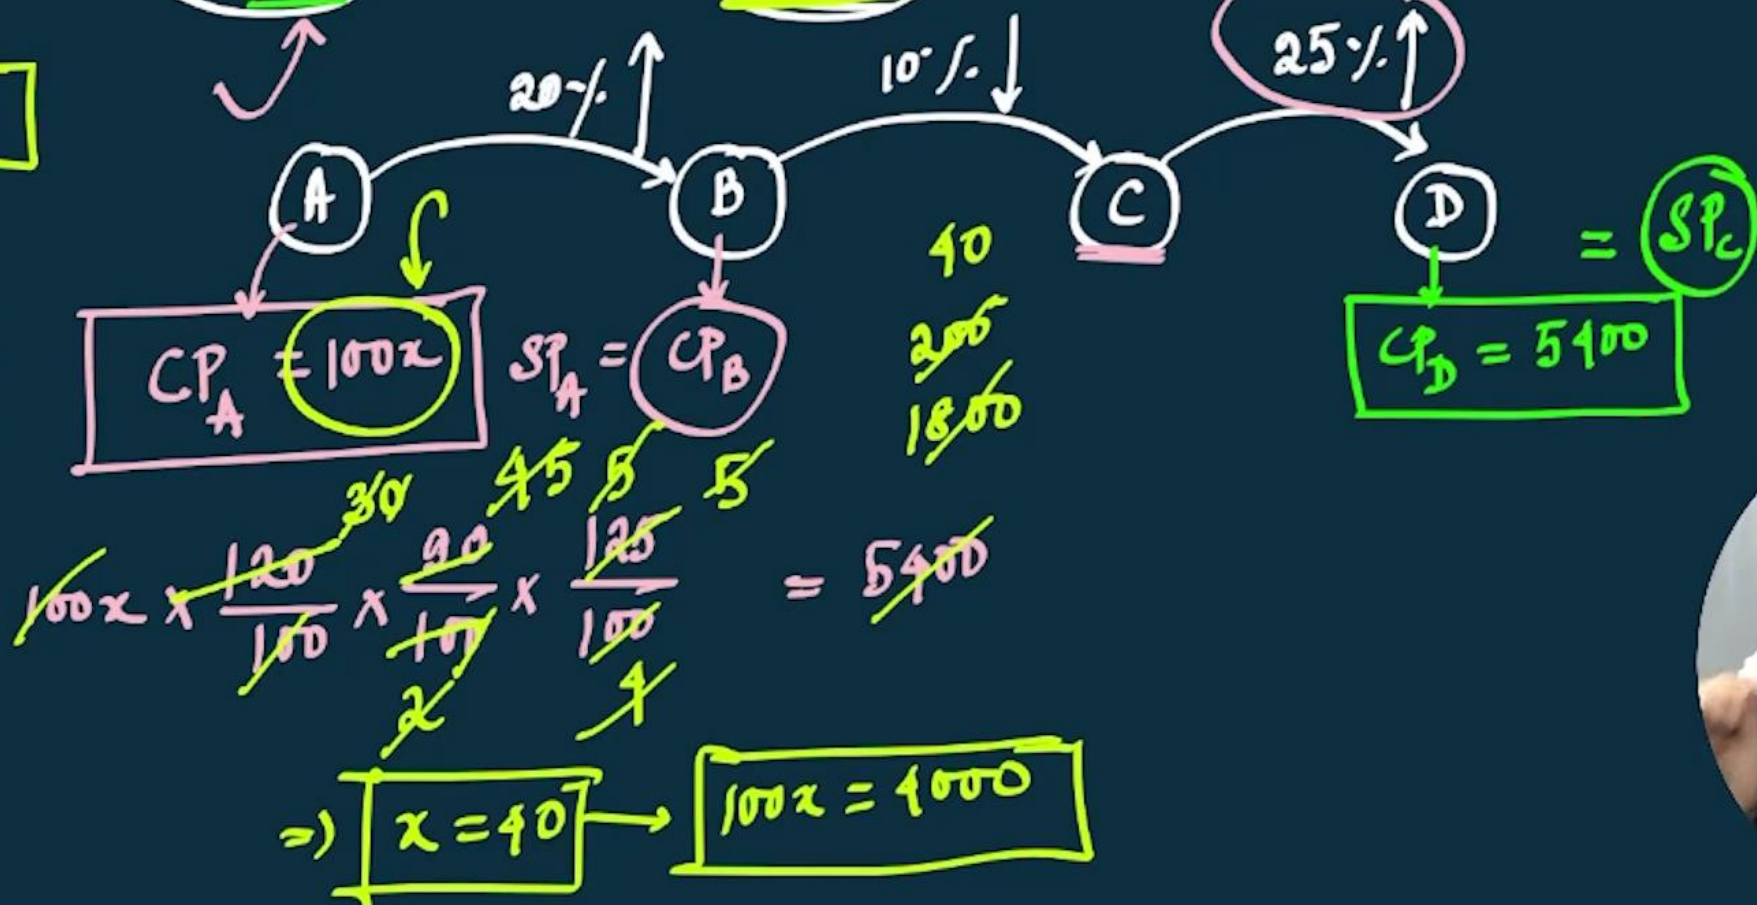 20% ↑ 10% ↓ 25% ↑
A B C D
= SP_C
CP_A = 100x SP_A = CP_B
CP_D = 5400
40
200
1800
30 45 5 5
100x × 120/100 × 90/100 × 125/100 = 5400
2 4
=) x = 40 → 100x = 4000